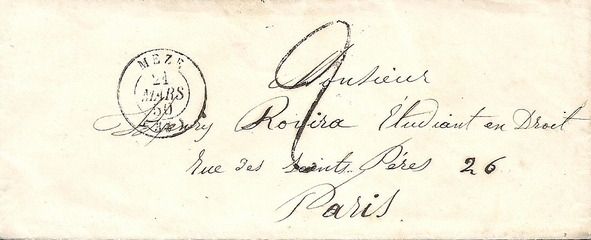 MEZE
21
MARS
50
2
Monsieur
Henry Rovira Etudiant en Droit
Rue des Saints Pères 26
Paris